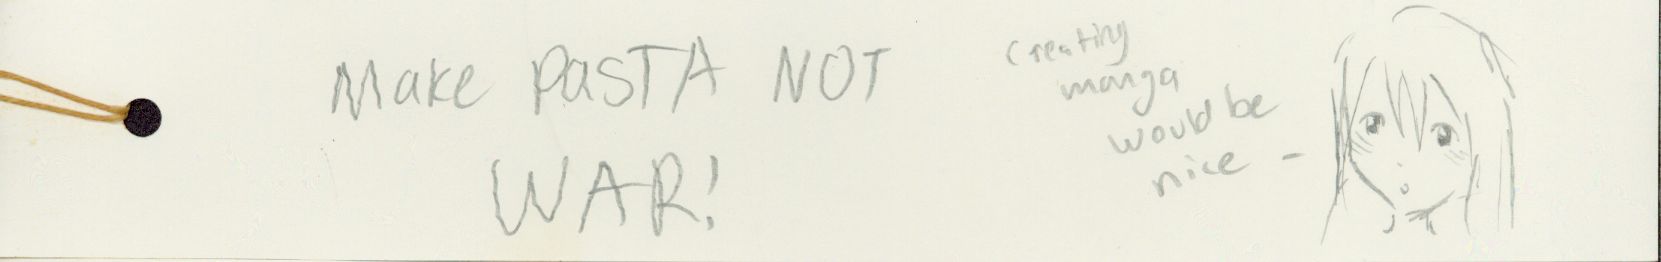 Make PASTA NOT
WAR!
Creating
manga
would be
nice -